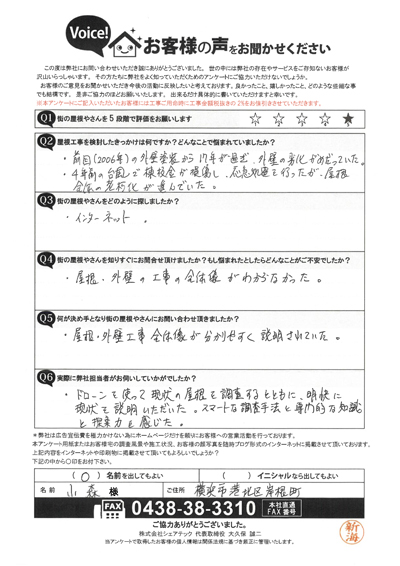 Voice!
お客様の声をお聞かせください
この度は弊社にお問い合わせいただき誠にありがとうございました。世の中には弊社の存在やサービスをご存知ないお客様が
沢山いらっしゃいます。その方たちに弊社をよく知っていただくためのアンケートにご協力いただけないでしょうか。
お客様のご意見をお聞かせいただき今後の活動に反映したいと考えております。良かったこと、嬉しかったこと、どのような些細な事
でも結構です。是非ご協力のほどお願いいたします。出来るだけ具体的に書いていただけますと幸いです。
※本アンケートにご記入いただいたお客様には工事ご用命時に工事金額総額の2%をお値引きさせていただきます。
Q1 街の屋根やさんを5段階で評価をお願いします
☆ ☆ ☆ ☆ ★
Q2 屋根工事を検討したきっかけは何ですか?どんなことで悩まれていましたか?
・前回(2006年)の外壁塗装から17年が過ぎ、外壁の劣化がめだっていた。
・4年前の台風で棟板金が損傷し、応急処置を行ったが、屋根
全体の老朽化が進んでいた。
Q3 街の屋根やさんをどのように探しましたか?
・インターネット。
Q4 街の屋根やさんを知りすぐにお問合せ頂けましたか?もし悩まれたとしたらどんなことがご不安でしたか?
・屋根・外壁の工事の全体像がわからなかった。
Q5 何が決め手となり街の屋根やさんにお問い合わせ頂きましたか?
・屋根・外壁工事全体像が分かりやすく説明されていた。
Q6 実際に弊社担当者がお伺いしていかがでしたか?
・ドローンを使って現状の屋根を調査するとともに、明快に
現状を説明いただいた。スマートな調査手法と専門的な知識
と提案力を感じた。
※弊社は広告宣伝費を極力かけない為にホームページだけを頼りにお客様への営業活動を行っております。
本アンケート用紙またはお客様宅の調査風景や施工状況、お客様の顔写真を随時ブログ形式のインターネットに掲載させて頂いております。
上記内容をインターネットや印刷物に掲載させて頂いてもよろしいでしょうか?
下記の中から○印をお付け下さい。
( ○ ) 名前を出してもよい ( ) イニシャルなら出してもよい
名前 小森 様 ご住所 横浜市港北区岸根町
FAX 0438-38-3310 本社直通FAX番号
ご協力ありがとうございました。
株式会社シェアテック 代表取締役 大久保 誠二
当アンケートで取得したお客様の個人情報は関係法規に基づき厳正に管理いたします。
新海